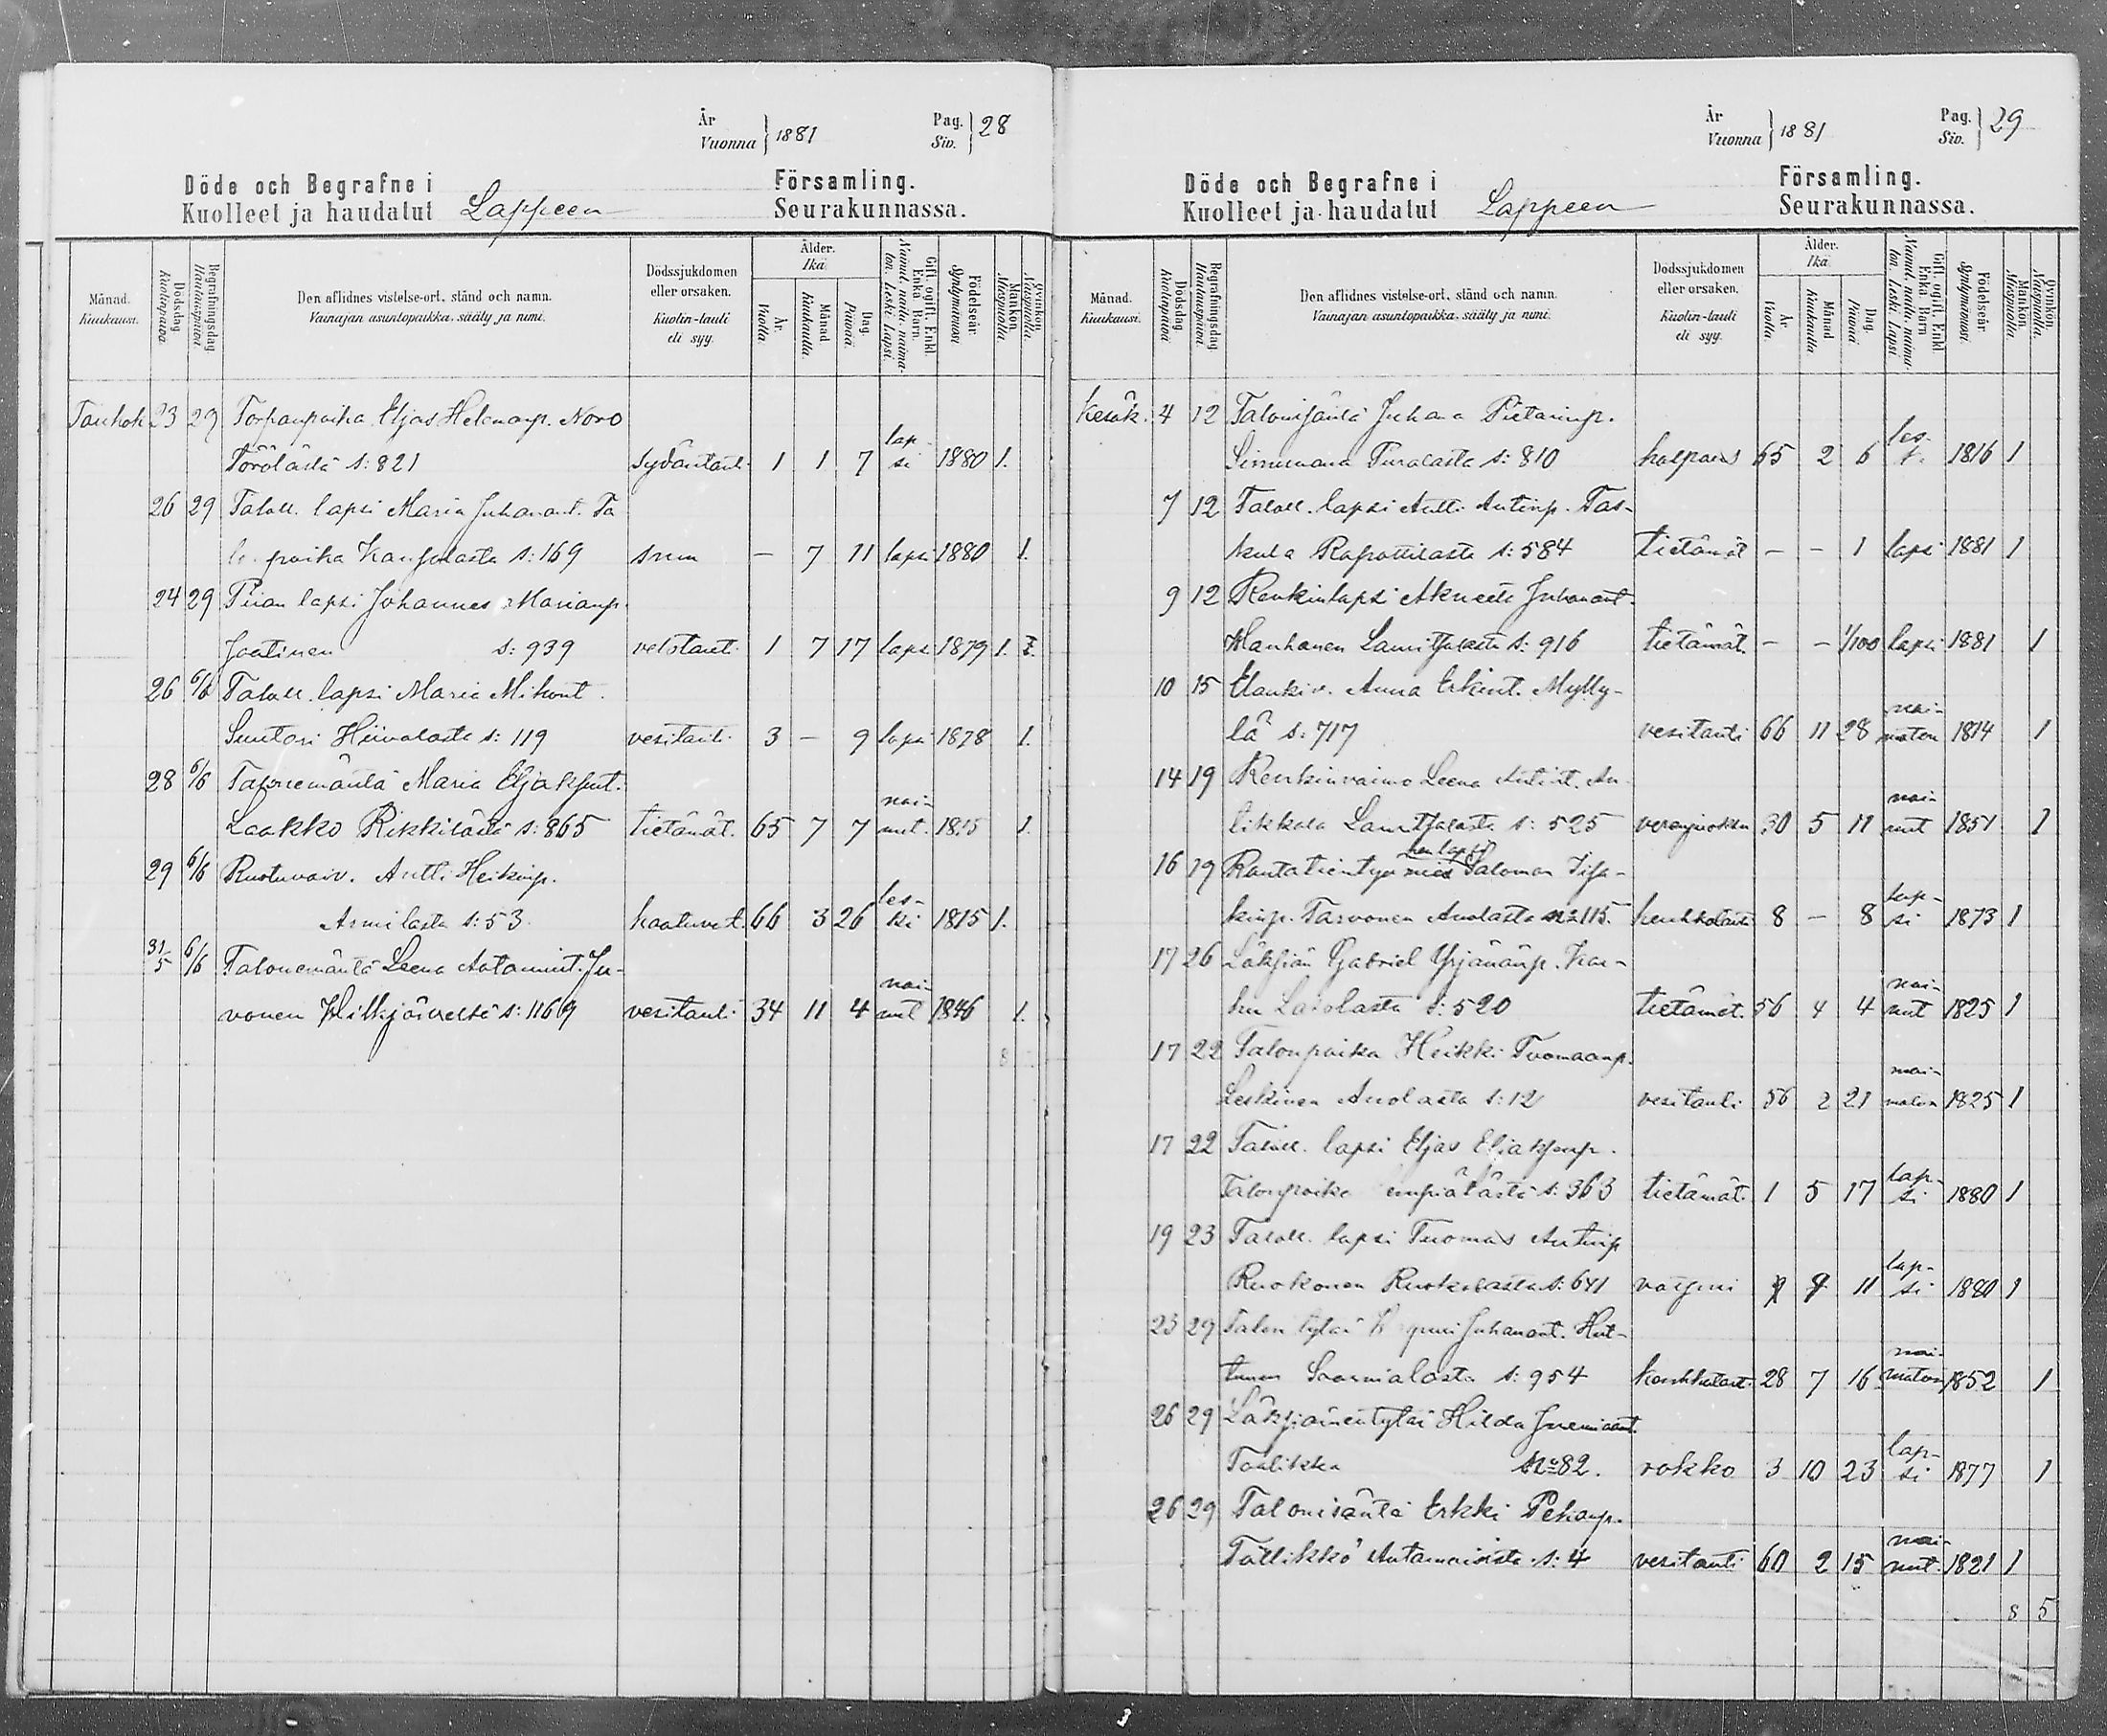 År
Vuonna } 1881
Pag.
Siv. } 28
Döde och Begrafne i Församling.
Kuolleet ja haudatut Lappeen Seurakunnassa.
Månad. Kuukausi.
Dödsdag Kuolinpäivä.
Begrafningsdag Hautauspäivä.
Den aflidnes vistelse-ort, stånd och namn.
Vainajan asuntopaikka, sääty ja nimi.
Dödssjukdomen eller orsaken.
Kuolin-tauti eli syy.
Ålder.
Ikä.
År. Vuotta.
Månad Kuukautta.
Dag. Päivää.
Gift, ogift, Enkl. Enka Barn.
Nainut, naitu, naimaton, Leski, Lapsi.
Födelseår Syntymävuosi
Mankön. Miespuolia.
Qvinkön. Naispuolia.
Toukok 23 29 Torpanpoika Eljas Helenanp. Noro
Törölästä s: 821 sydäntaut. 1 1 7 lapsi 1880 1.
26 29 Taloll. lapsi Maria Juhanant. Ta
poika s: 169 — 7 11 lapsi 1880 1.
24 29 Piian lapsi Johannes Marianp.
Jaatinen s: 939 1 7 17 laps 1879 1.
26 6/6 Taloll. lapsi Maria Mikont.
Suntari Hiivalasta s: 119 vesitauti 3 — 9 lapsi 1878 1.
28 6/6 Talonemäntä Maria Eljakfint.
Laakko Rikkilästä s: 865 tietämät. 65 7 7 nainut. 1815 1.
29 6/6 Ruotuvaiv. Antti Heikinp.
Armilasta s: 53. kaatuvat. 66 3 26 leski 1815 1.
31/5 6/6 Talonemäntä Leena Aatamint. Ju-
vonen Hilkjärveltä s: 1169 vesitauti 34 11 4 nainut 1846 1.
8
År
Vuonna } 1881
Pag.
Siv. } 29
Döde och Begrafne i Församling.
Kuolleet ja haudatut Lappeen Seurakunnassa.
Månad. Kuukausi.
Dödsdag Kuolinpäivä
Begrafningsdag. Hautauspäivä.
Den aflidnes vistelse-ort, stånd och namn.
Vainajan asuntopaikka, sääty ja nimi.
Dödssjukdomen eller orsaken.
Kuolin-tauti eli syy.
Ålder.
Ikä.
År Vuotta
Månad Kuukautta
Dag. Päivää
Gift, ogift, Enkl. Enka Barn
Nainut, naitu, naimaton, Leski, Lapsi.
Födelseår Syntymävuosi.
Mankön. Miespuolia
Qvinkön. Naispuolia.
Kesäk. 4 12 Talonisäntä Juhana Pietarinp.
Sinnemaa s: 810 halpaus 65 2 6 1816 1
7 12 Taloll. lapsi Antti Antinp. Tas-
kula Rapattilasta s: 584 tietämät — — 1 lapsi 1881 1
9 12 Renkinlapsi Akneeta Juhanant.
Manhanen Lauritsalasta s: 916 tietämät. — — 1/100 lapsi 1881 1
10 15 Elankiv. Anna Erkint. Mylly-
lä s: 717 vesitauti 66 11 28 naimaton 1814 1
14 19 Renkinvaimo Leena Antint. An-
tikkala Lauritsalasta s: 525 30 5 11 nainut 1851 1
16 19 Rautatientyömiehen lapsi Salomon
Tarvonen Anolasta №115. keuhkotaut 8 — 8 lapsi 1873 1
17 26 Läksiän Gabriel Yrjänänp. Kar-
hu s: 520 tietämät. 56 4 4 nainut 1825 1
17 22 Talonpoika Heikki Tuomaanp.
Leskinen Anolasta s: 12 vesitauti 56 2 21 naimaton 1825 1
17 22 Taloll. lapsi Eljas Eljakfenp.
Talonpoika s: 363 tietämät. 1 5 17 lapsi 1880 1
19 23 Taloll. lapsi Tuomas Antinp
Ruokonen Ruokolasta s: 641 11 lapsi 1880 1
23 29 Talon Juhanant. Hut-
tunen s: 954 keuhkotaut. 28 7 16 naimaton 1852 1
26 29 Läksiäinentytär Hilda Jeremiant.
Toalikka №82. rokko 3 10 23 lapsi 1877 1
26 29 Talonisäntä Erkki Pekanp.
Tallikko s: 4 vesitauti 60 2 15 nainut. 1821 1
8 5